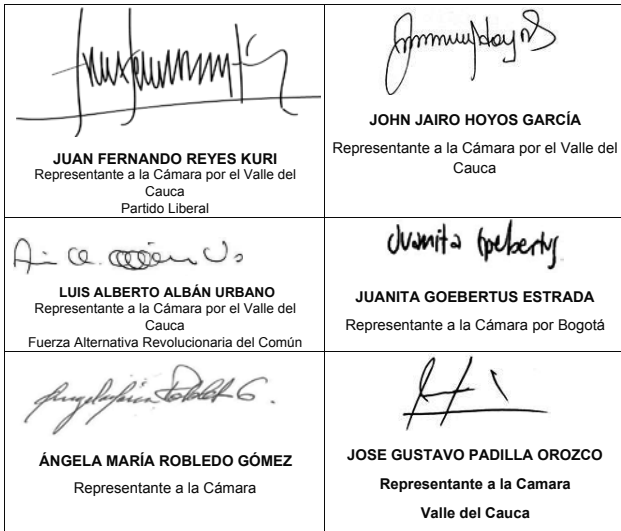 JUAN FERNANDO REYES KURI
Representante a la Cámara por el Valle del
Cauca
Partido Liberal
JOHN JAIRO HOYOS GARCÍA
Representante a la Cámara por el Valle del
Cauca
LUIS ALBERTO ALBÁN URBANO
Representante a la Cámara por el Valle del
Cauca
Fuerza Alternativa Revolucionaria del Común
Juanita Goebertus
JUANITA GOEBERTUS ESTRADA
Representante a la Cámara por Bogotá
ÁNGELA MARÍA ROBLEDO GÓMEZ
Representante a la Cámara
JOSE GUSTAVO PADILLA OROZCO
Representante a la Camara
Valle del Cauca